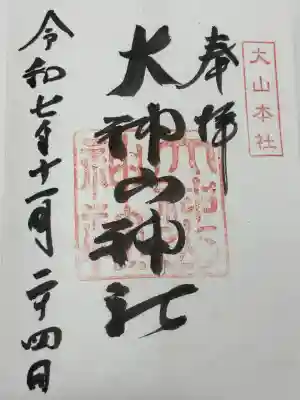 大山本社
奉拝
大神山神社
令和七年十一月二十四日